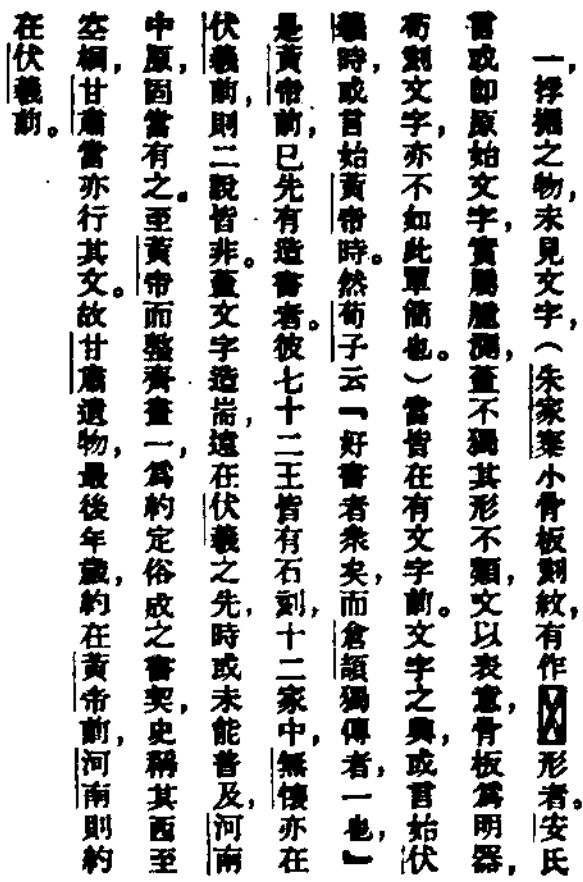 一，捊掘之物，未見文字，（朱家寨小骨板刻紋，有作形者。安氏
言或即原始文字，實屬臆測，蓋不獨其形不類，文以表意，骨板爲明器，
茍刻文字，亦不如此單簡也。）當皆在有文字前。文字之興，或言始伏
羲時，或言始黃帝時。然荀子云『好書者衆矣，而倉頡獨傳者，一也，』
是黃帝前，已先有造書者。彼七十二王皆有石刻，十二家中，無懷亦在
伏羲前，則二說皆非。蓋文字造耑，遠在伏羲之先，時或未能普及，河南
中原，固當有之。至黃帝而整齊畫一，爲約定俗成之書契，史稱其西至
空桐，甘肅當亦行其文。故甘肅遺物，最後年歲，約在黃帝前，河南則約
在伏羲前。